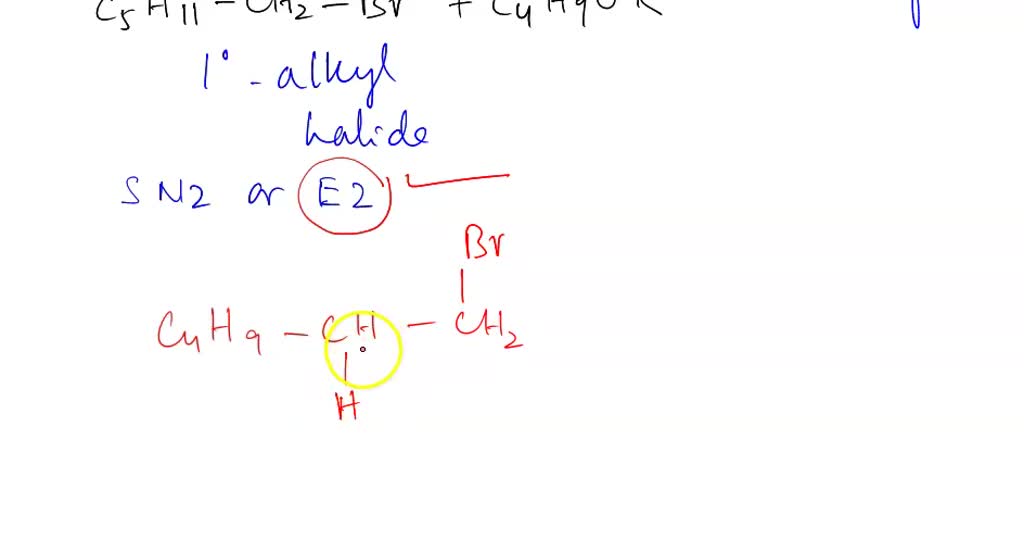 C5H11-CH2-Br + C4H9OK
1°-alkyl
halide
SN2 or E2
Br
C4H9-CH-CH2
H